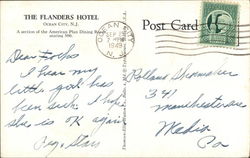 THE FLANDERS HOTEL
OCEAN CITY, N.J.
A section of the American Plan Dining Room
seating 500.
Post Card
OCEAN CITY
SEP
1949
N.J.
Dear Folks
I hear my
little girl has
been sick. I hope
she is OK again
Rolland Shoemaker
341
Manchester Ave
Media
Pa